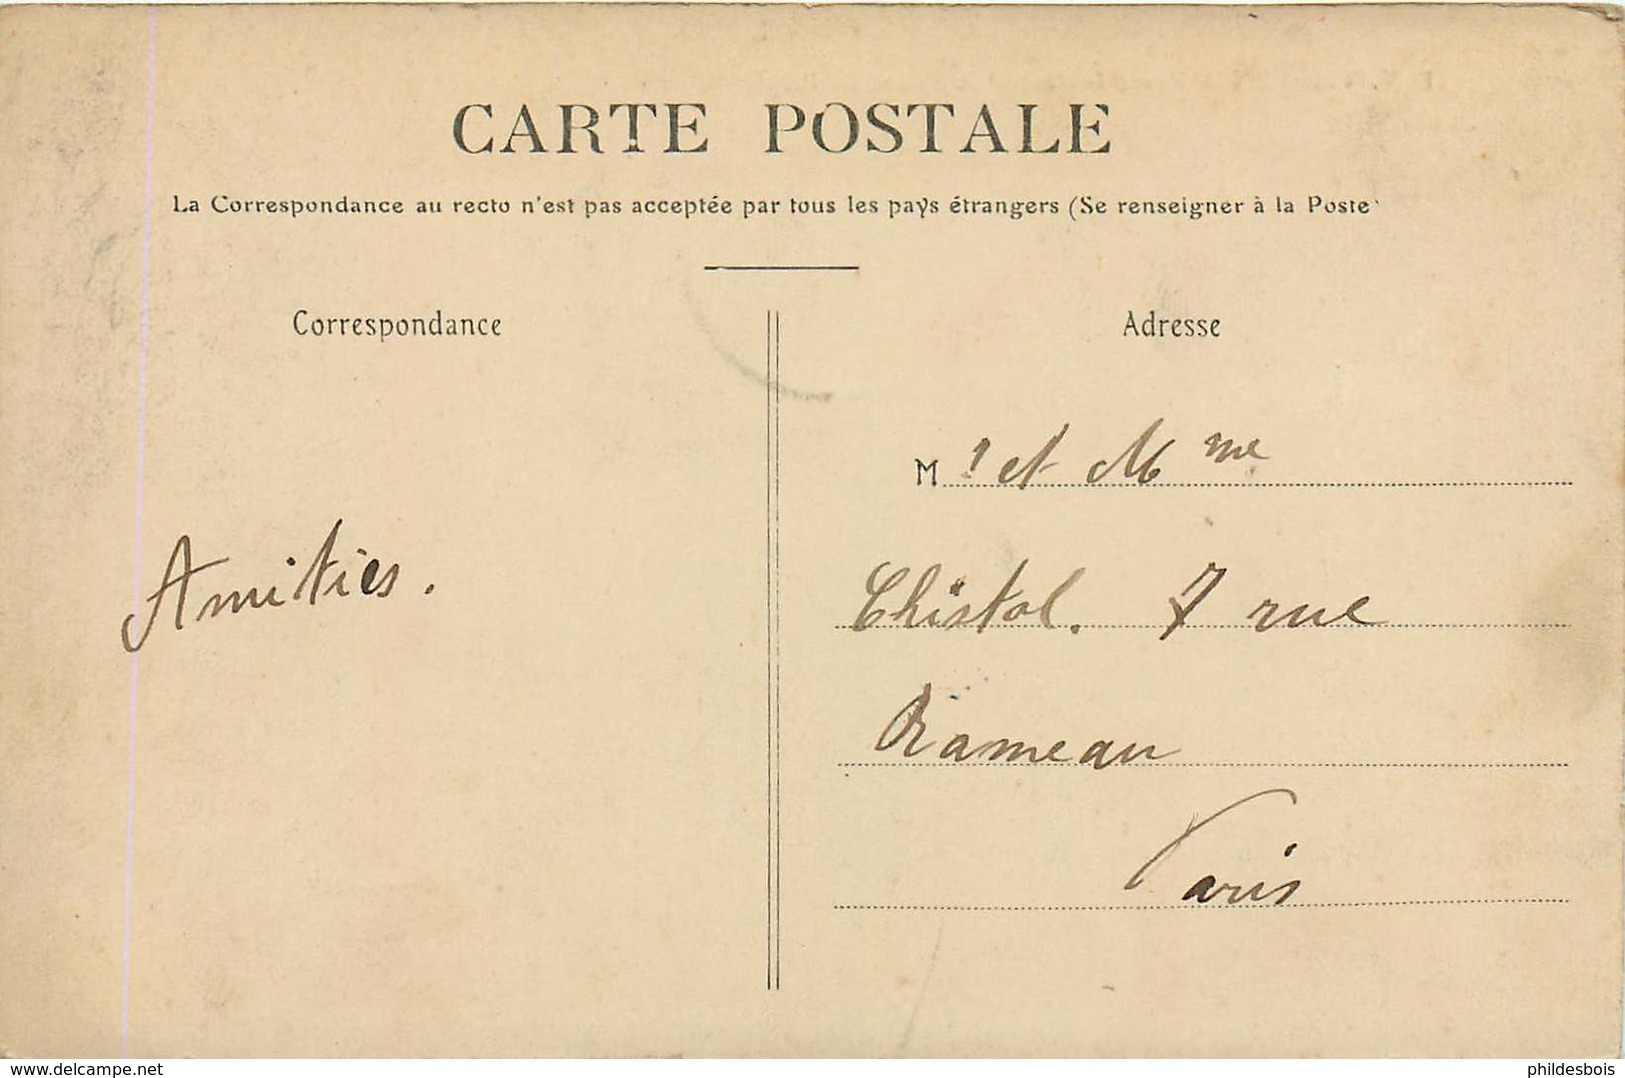 CARTE POSTALE
La Correspondance au recto n'est pas acceptée par tous les pays étrangers (Se renseigner à la Poste
Correspondance
Adresse
Amitiés.
M r et Mme
Chistol. 7 rue
Rameau
Paris
www.delcampe.net
phildesbois